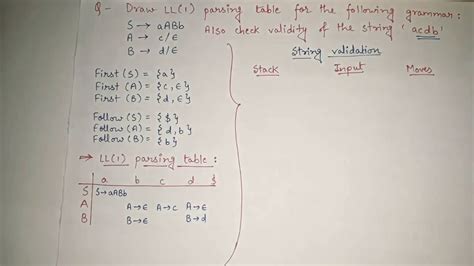 Q- Draw LL(1) parsing table for the following grammar:
S → aABb
A → c/ε
B → d/ε
Also check validity of the string 'acdb'
First (S) = {a}
First (A) = {c, ε}
First (B) = {d, ε}
Follow (S) = {$}
Follow (A) = {d, b}
Follow (B) = {b}
⇒ LL(1) parsing table :
a b c d $
S S→aABb
A A→ε A→c A→ε
B B→ε B→d
String validation
Stack Input Moves